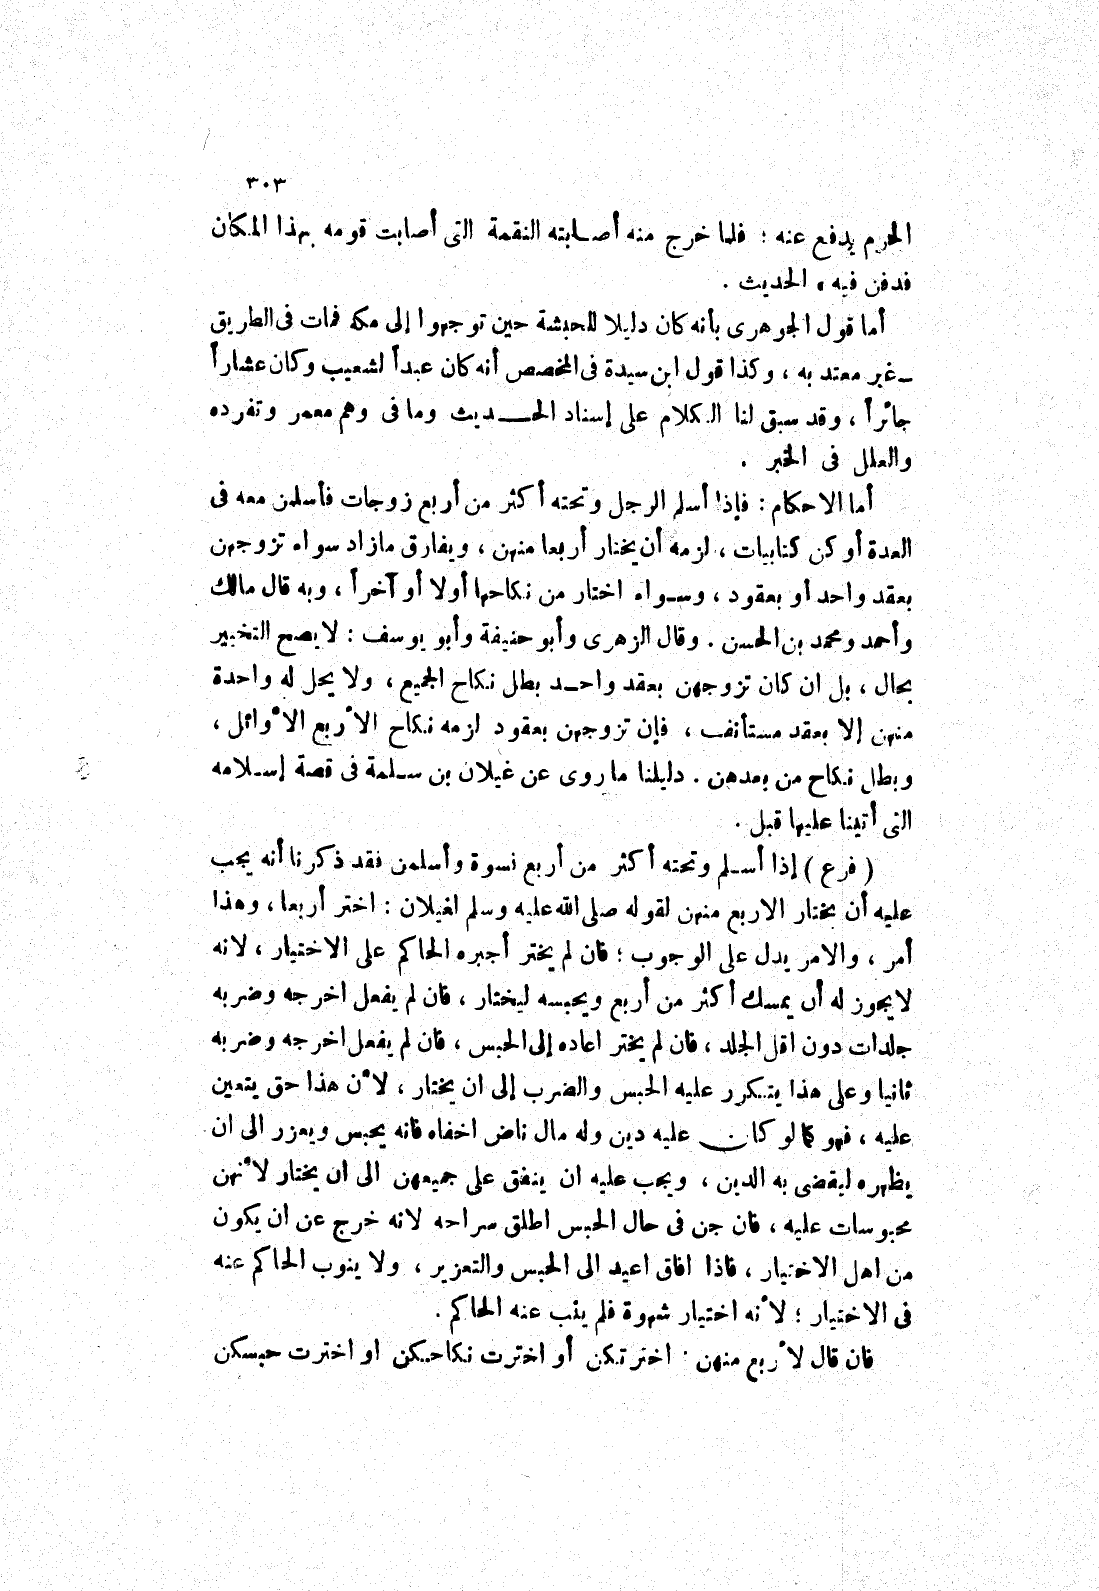 ٣٠٣
الحرم يدفع عنه ؛ فلما خرج منه أصـابته النقمة التى أصابت قومه بهذا المكان
فدفن فيه ، الحديث .
أما قول الجوهرى بأنه كان دليلا للحبشة حين توجهوا إلى مكة فمات فى الطريق
ـ غير معتد به ، وكذا قول ابن سيدة فى المخصص أنه كان عبداً لشعيب وكان عشاراً
جائراً ، وقد سبق لنا الكلام على إسناد الحـــديث وما فى وهم معمر وتفرده
والعلل فى الخبر .
أما الاحكام : فإذا أسلم الرجل وتحته أكثر من أربع زوجات فأسلمن معه فى
العدة أو كن كتابيات ، لزمه أن يختار أربعا منهن ، ويفارق مازاد سواء تزوجهن
بعقد واحد أو بعقود ، وسـواء اختار من نكاحها أولا أو آخراً ، وبه قال مالك
وأحمد ومحمد بن الحسن . وقال الزهرى وأبو حنيفة وأبو يوسف : لا يصح التخيير
بحال ، بل ان كان تزوجهن بعقد واحـد بطل نكاح الجميع ، ولا يحل له واحدة
منهن إلا بعقد مستأنف ، فإن تزوجهن بعقود لزمه نكاح الأربع الأوائل ،
وبطل نكاح من بعدهن . دليلنا ما روى عن غيلان بن سـلمة فى قصة إسـلامه
التى أتينا عليها قبل .
( فرع ) إذا أسـلم وتحته أكثر من أربع نسوة وأسلمن فقد ذكرنا أنه يجب
عليه أن يختار الاربع منهن لقوله صلى الله عليه وسلم لغيلان : اختر أربعا ، وهذا
أمر ، والامر يدل على الوجوب ؛ فان لم يختر أجبره الحاكم على الاختيار ، لانه
لا يجوز له أن يمسك أكثر من أربع ويحبسه ليختار ، فان لم يفعل اخرجه وضربه
جلدات دون اقل الجلد ، فان لم يختر اعاده إلى الحبس ، فان لم يفعل اخرجه وضربه
ثانيا وعلى هذا يتـكرر عليه الحبس والضرب إلى ان يختار ، لأن هذا حق يتعين
عليه ، فهو كما لو كان عليه دين وله مال ناض اخفاه فانه يحبس ويعزر الى ان
يظهره ليقضى به الدين ، ويجب عليه ان ينفق على جميعهن الى ان يختار لأنهن
محبوسات عليه ، فان جن فى حال الحبس اطلق سراحه لانه خرج عن ان يكون
من اهل الاختيار ، فاذا افاق اعيد الى الحبس والتعزير ، ولا ينوب الحاكم عنه
فى الاختيار ؛ لأنه اختيار شهوة فلم ينب عنه الحاكم .
فان قال لأربع منهن : اخترتكن أو اخترت نكاحـكن او اخترت حبسكن